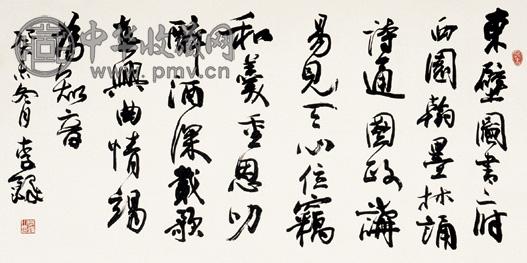 東壁圖書府
西園翰墨林誦
詩通國政講
易見天心位竊
和羹重恩叨
醉酒深載歌
春興曲情竭
為知音
癸未冬月李鐸
中华收藏网
www.pmv.cn